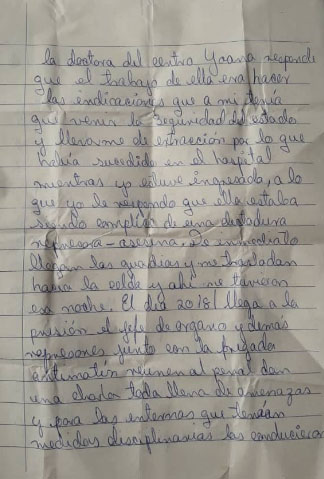 la doctora del centro Yoana responde
que el trabajo de ella era hacer
las indicaciones que a mi tenía
que venir la seguridad del estado
y llevarme de extracción por lo que
había sucedido en el hospital
mientras yo estuve ingresado, a lo
que yo le respondo que ella estaba
siendo complice de una dictadura
represora-asesina. De enmediato
llegan las guardias y me trasladan
hacia la celda y ahí me tuvieron
esa noche. El día 20/8/ llega a la
prisión el jefe de organo y demás
represores junto con la brigada
antimotín reunen al penal dan
una charla toda llena de amenazas
y para las internas que tenían
medidas disciplinarias las conducieron